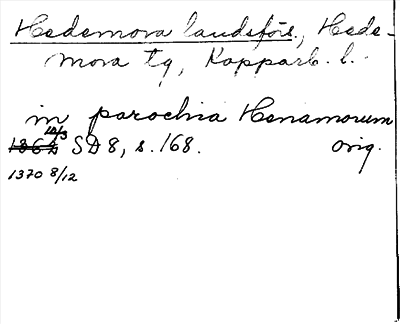 Hedemora landsförs., Hede-
mora tg, Kopparb. l.
in parochia Henamorum
10/3
1362 SD 8, s. 168. orig.
1370 8/12